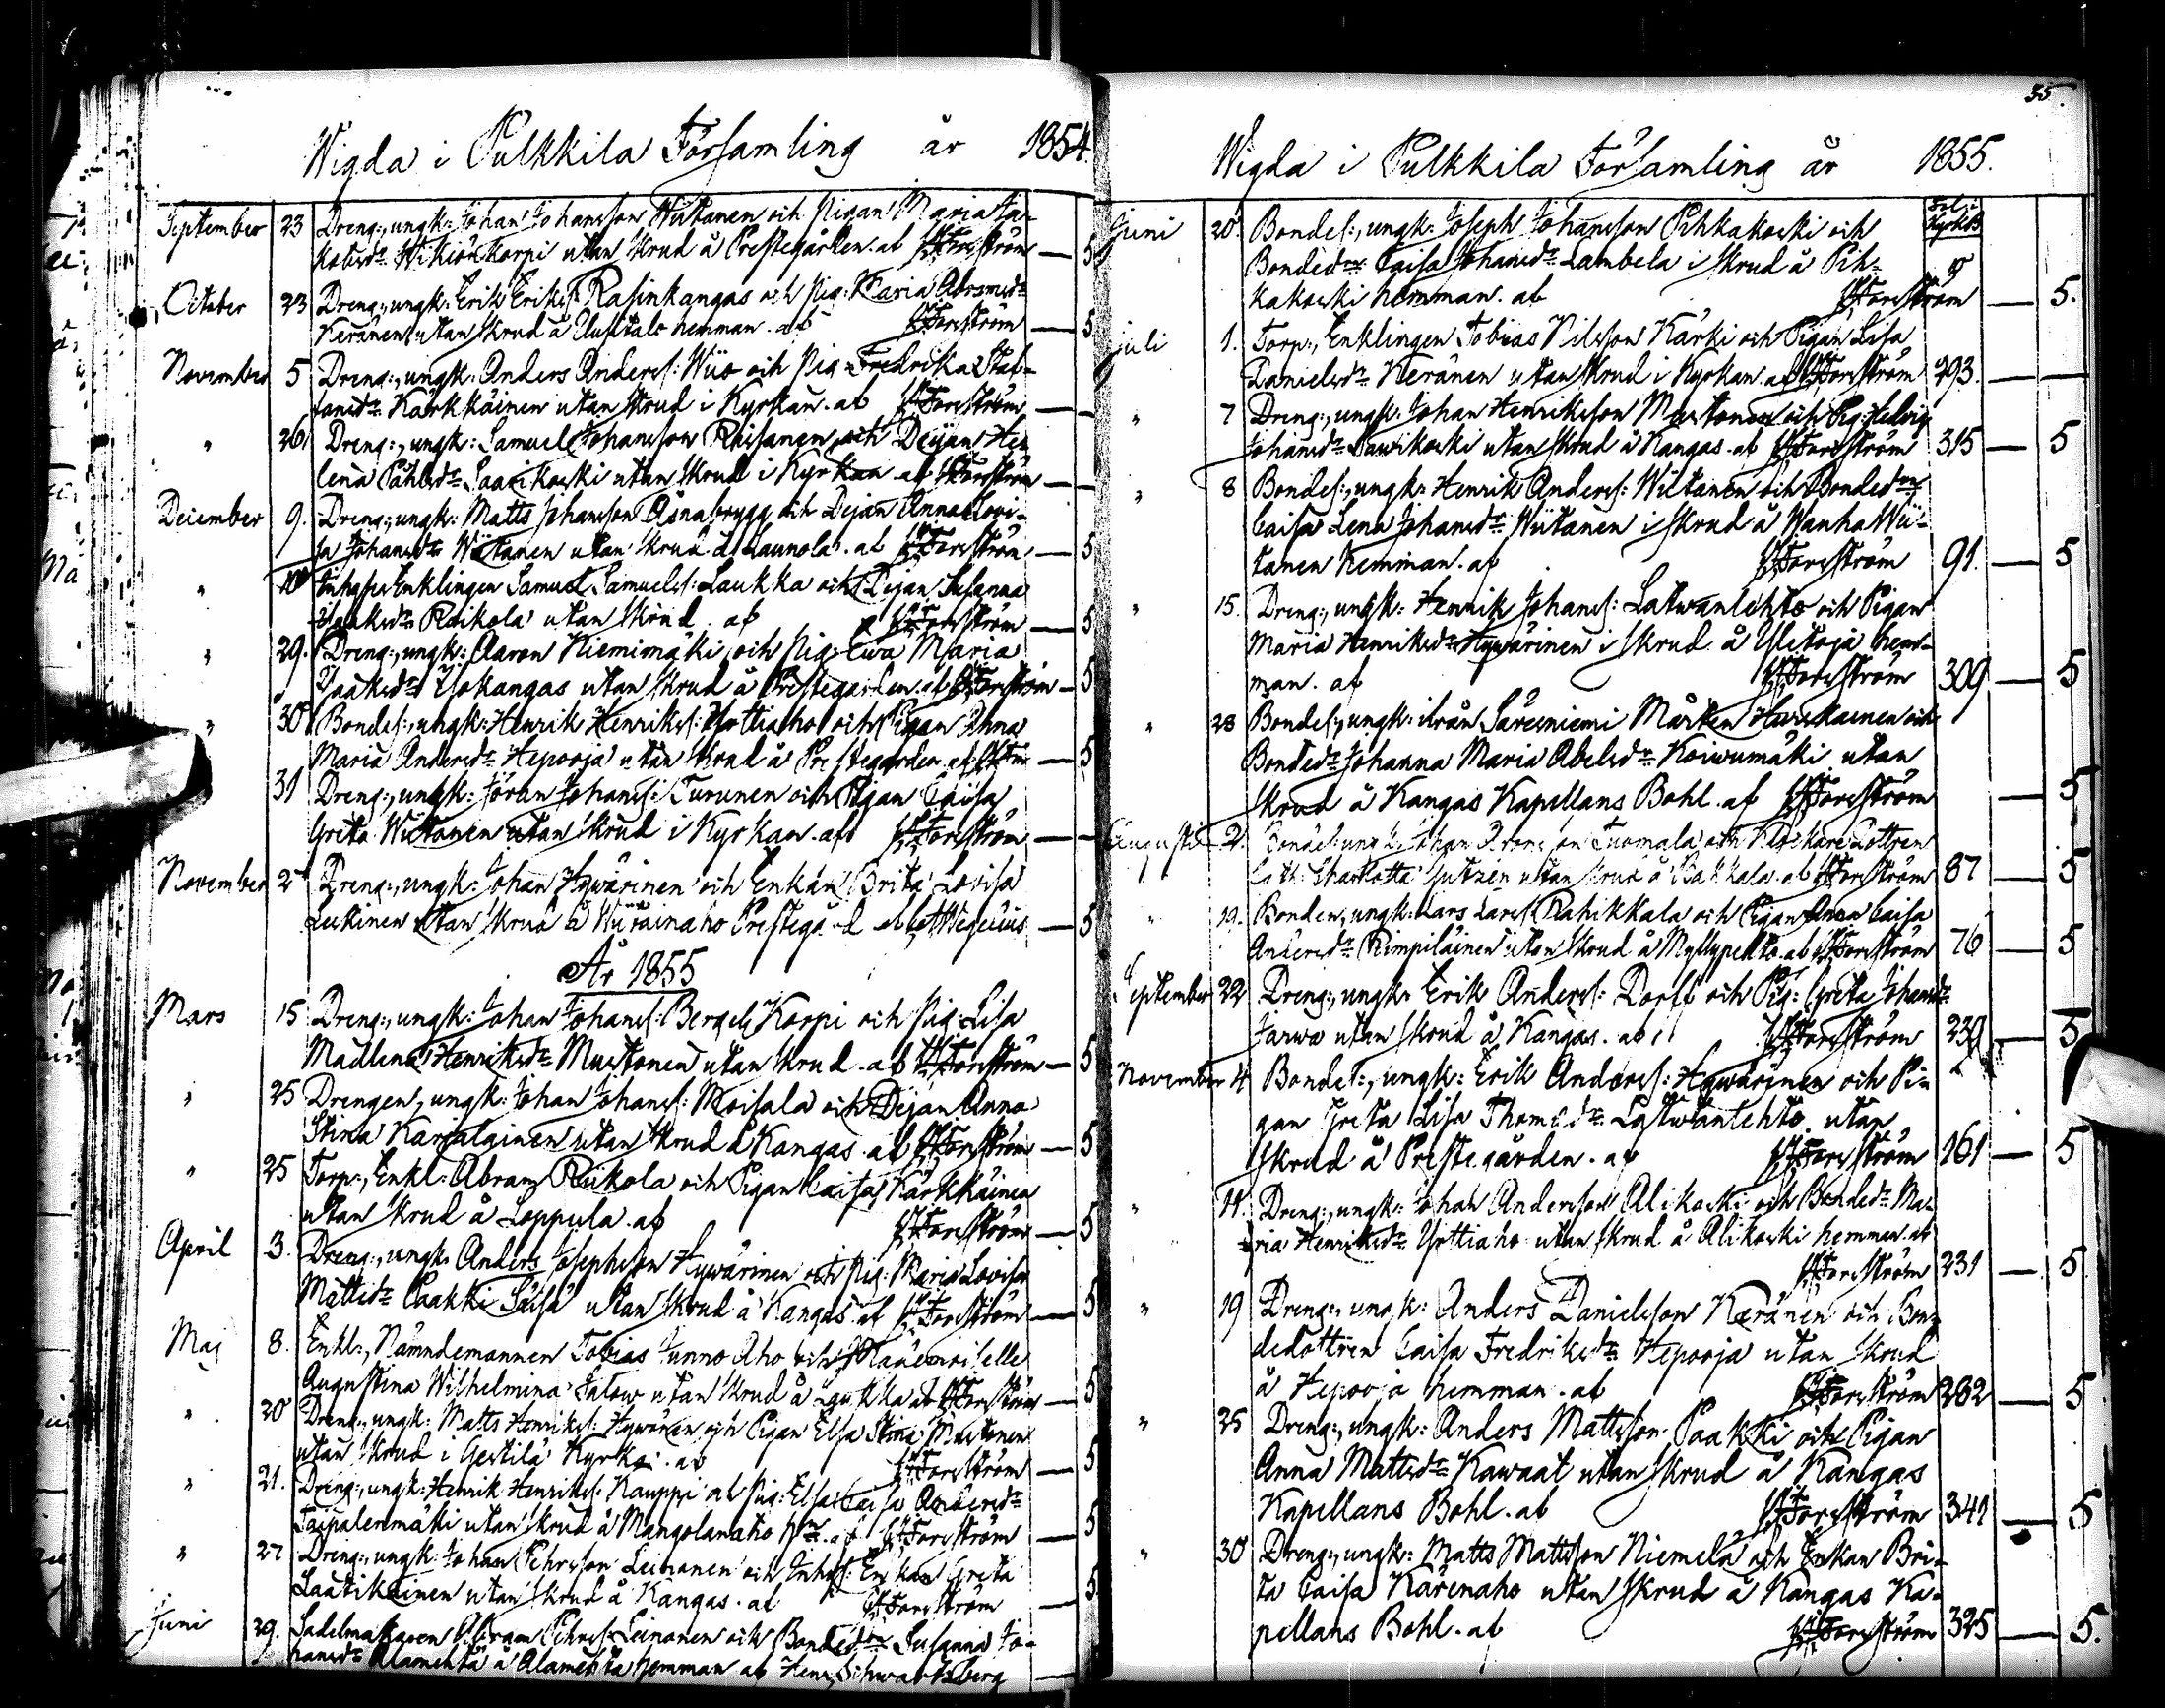 Wigda i Pulkkila Församling år 1854.
September 23 Dreng:, ungk: Johan Johansson Wiitanen och Pigan Maria Ja-
kobsdr. utan skrud å Prestegården. af HForsström — 5
October 23 Dreng:, ungk: Erik Eriks: Rasinkangas och Pig: Maria Abramsdr
Keränen utan skrud å hemman. af HForsström — 5
November 5 Dreng:, ungk: Anders Anders: Wiio och Pig: Fredrika Staf-
fansdr Kärkkäinen utan skrud i Kyrkan. af HForsström —
" 26 Dreng:, ungk: Samuel Johansson och Dejan He-
lena Påhlsdr Saarikoski utan skrud i Kyrkan af HForsström —
December 9. Dreng:, ungk: Matts Johansson Åsnabrygg och Dejan Anna Lovi-
sa Johansdr Wiitanen utan skrud å Launola. af HForsström — 5
" Enklingen Samuel Samuels: Laukka och Dejan Susanna
Isaksdr Raikola utan skrud. af HForsström — 5
" 29. Dreng:, ungk: Aaron Niemimäki och Pig: Ewa Maria
Isaksdr Yökangas utan skrud å Prestegården. af HForsström — 5
" 30 Bondes:, ungk: Henrik Henriks: Yrttiaho och Pigan Anna
Maria Andersdr Hepooja utan skrud å Prestegården. af — 5
31 Dreng:, ungk: Göran Johans: Turunen och Pigan Caisa
Greta Wiitanen utan skrud i Kyrkan. af HForsström —
November 2 Dreng:, ungk: Johan Hywärinen och Enkan Brita Lovisa
Leskinen utan skrud å — 5
År 1855
Mars 15 Dreng:, ungk: Johan Johans: Korpi och Pig: Lisa
Madlena Henriksdr Mustonen utan skrud. af HForsström — 5
" 25 Drengen, ungk: Johan Johans: Moisala och Dejan Anna
Stina Karjalainen utan skrud å Kangas. af HForsström — 5
" 25 Torp:, Enkl: Abram Raikola och Pigan Caisa Kärkkäinen
utan skrud å Leppula. af HForsström — 5
April 3. Dreng:, ungk: Anders Josephsson Hywärinen och Pig: Maria Lovisa
Mattsdr Paakki utan skrud å Kangas af HForsström — 5
Maj 8. Enkl:, Nämndemannen Tobias Junno Aho och Mademoiselle
Augustina Wilhelmina Falow utan skrud å Laukka af HForsström — 5
" 20 Dreng:, ungk: Matts Henriks: Hywärinen och Pigan Elsa Stina Mustonen
utan skrud i Gestilä Kyrka. af HForsström — 5
" 21. Dreng:, ungk: Henrik Henriks: Kauppi och Pig: Elsa Caisa Andersdr
Taipalenmäki utan skrud å af HForsström — 5
" 27 Dreng:, ungk: Johan Pehrsson Leinonen och Inhys: Enkan Greta
Laatikainen utan skrud å Kangas. af HForsström — 5
Juni 29. Sadelmakaren Abram Pehrs: Leinonen och Bondedn Susanna Jo-
hansdr Alamehtä å Alamehtä hemman af Henr. Schwartzberg —
35.
Wigda i Pulkkila Församling år 1855.
Juni 20. Bondes:, ungk: Joseph Johansson Pihkakoski och
Bondedn Caisa Johansdr Lambela i skrud å Pih-
kakoski hemman. af HForsström — 5.
Juli 1. Torp:, Enklingen Tobias Nilsson Kärki och Pigan Lisa
Danielsdr Keränen utan skrud i Kyrkan. af HForsström 293. —
" 7 Dreng:, ungk: Johan Henriksson Mustonen och Pig: Helvig
Johansdr Saarikoski utan skrud å Kangas. af HForsström 315 — 5
" 8 Bondes:, ungk: Henrik Anders: Wiitanen och Bondedn
Caisa Lena Johansdr Wiitanen i skrud å Wanha Wii-
tanen hemman. af HForsström 91. — 5
" 15. Dreng:, ungk: Henrik Johans: Latwanlehto och Pigan
Maria Henriksdr Hywärinen i skrud å hem-
man. af HForsström 309 — 5
" 28 Bondes:, ungk: ifrån Säresniemi Mårten Hurskainen och
Bondedr Johanna Maria Abelsdr Koiwumäki utan
skrud å Kangas Kapellans Bohl. af HForsström — 5
Augusti 2. Bondes: ungk: Johan Tuomala och Klockare Dottren
Charlotta utan skrud å Pakkala. af HForsström 87 — 5
" 19. Bonden, ungk: Lars Lars: Rahikkala och Pigan Anna Caisa
Andersdr Rimpiläinen utan skrud å Myllypelto. af HForsström 76 — 5
September 22 Dreng:, ungk: Erik Anders: Dorff och Pig: Greta Johansdr
Jarwa utan skrud å Kangas. af HForsström 239 — 5
November 4 Bondes:, ungk: Erik Anders: Hywärinen och Pi-
gan Greta Lisa Thomsdr Latwanlehto utan
skrud å Prestegården. af HForsström 161 — 5
" 11. Dreng:, ungk: Johan Andersson Alikoski och Bondedr Ma-
ria Henriksdr Yrttiaho utan skrud å Alikoski hemman. af
HForsström 231 — 5
" 19 Dreng:, ungk: Anders Danielsson Keränen och Bon-
dedottren Caisa Fredriksdr Hepooja utan skrud
å Hepooja hemman. af HForsström 282 — 5
" 25 Dreng:, ungk: Anders Mattsson Paakki och Pigan
Anna Mattsdr Kawaat utan skrud å Kangas
Kapellans Bohl. af HForsström 341 — 5
" 30 Dreng:, ungk: Matts Mattsson Niemelä och Enkan Bri-
ta Caisa Kärenaho utan skrud å Kangas Ka-
pellans Bohl. af HForsström 325 — 5.